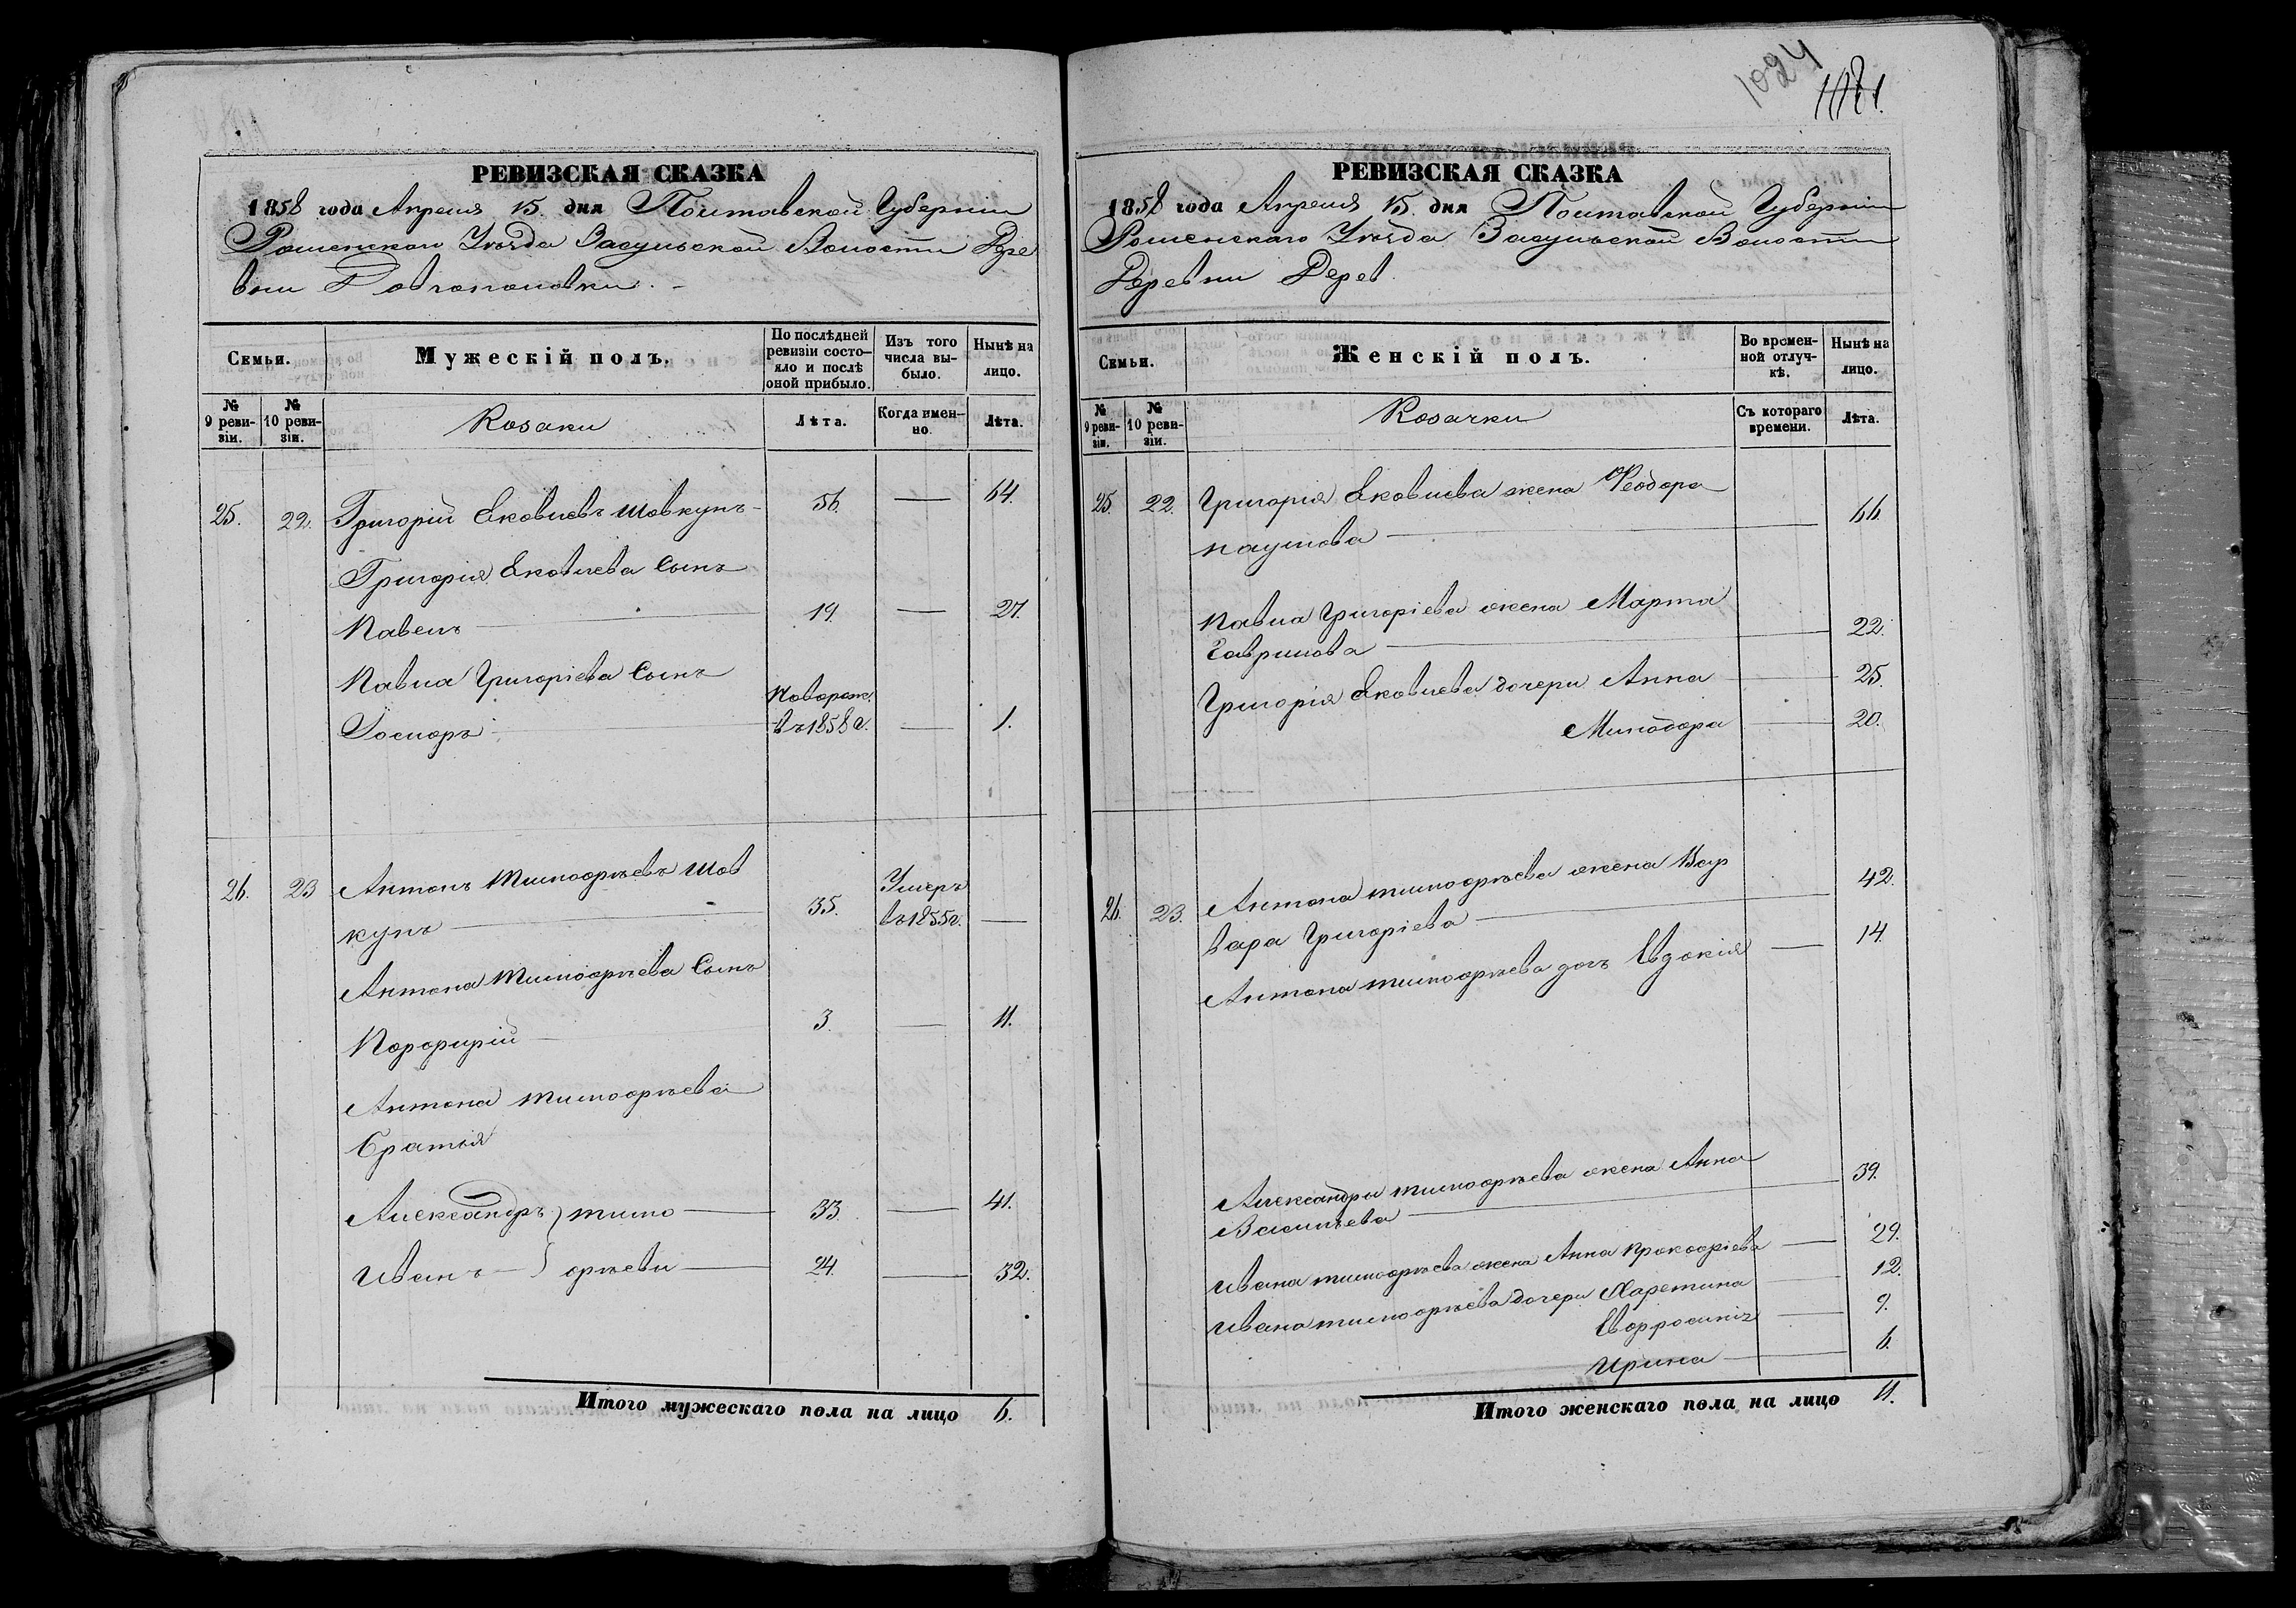 1024
РЕВИЗСКАЯ СКАЗКА
1858 года Апреля 15. дня Полтавской Губерніи
Роменскаго Уѣзда Засульской Волости Дере
вни Довгополовки.
Семьи.
Мужескій полъ.
По послѣдней ревизіи состояло и послѣ оной прибыло.
Изъ того числа выбыло.
Нынѣ на лицо.
№ 9 ревизіи.
№ 10 ревизіи.
Козаки
Лѣта.
Когда именно.
Лѣта.
25. 22. Григорій Яковлевъ Шовкунъ 56. — 64.
Григорія Яковлева Сынъ
Павелъ 19. — 27.
Павла Григоріева Сынъ
Новорож.
въ 1858 г. — 1.
26. 23 Антонъ Тимофѣевъ Шов
кунъ — 35. Умеръ въ 1855 г. —
Антона Тимофѣева Сынъ
Порфирій 3. — 11.
Антона Тимофѣева
Братья
Александръ } Тимо — 33. — 41.
Иванъ — } фѣевы — 24. — 32.
Итого мужескаго пола на лицо 6.
РЕВИЗСКАЯ СКАЗКА
1858 года Апреля 15. дня Полтавской Губерніи
Роменскаго Уѣзда Засульской Волости
Деревни Дерев
Семьи.
Женскій полъ.
Во временной отлучкѣ.
Нынѣ на лицо.
№ 9 ревизіи.
№ 10 ревизіи.
Козачки
Съ котораго времени.
Лѣта.
25. 22. Григорія Яковлева жена Феодора
Наумова — 66.
Павла Григоріева жена Марта
Гаврилова — 22.
Григорія Яковлева дочери Анна — 25.
Минодора — 20.
26. 23. Антона Тимофѣева жена Вар
вара Григоріева — 42.
Антона Тимофѣева дочь Евдокія — 14.
Александра Тимофѣева жена Анна
Васильева — 39.
Ивана Тимофѣева жена Анна Прокофіева — 29.
Ивана Тимофѣева дочери Харетина 12.
Ефросинія — 9.
Ирина — 6.
Итого женскаго пола на лицо 11.